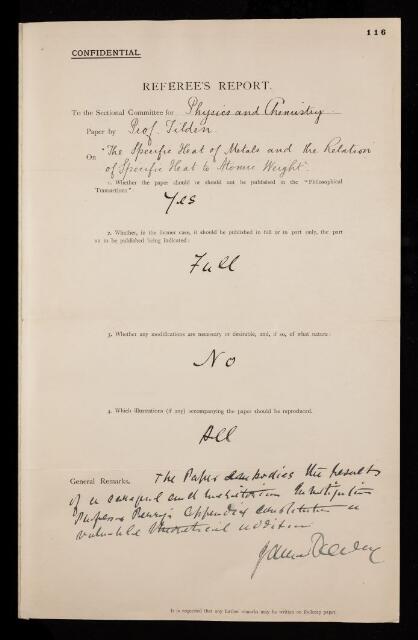 116
CONFIDENTIAL.
REFEREE'S REPORT.
To the Sectional Committee for Physics and Chemistry
Paper by Prof. Tilden.
On "The Specific Heat of Metals and the Relation
of Specific Heat to Atomic Weight".
1. Whether the paper should or should not be published in the "Philosophical
Transactions"
Yes
2. Whether, in the former case, it should be published in full or in part only, the part
to be published being indicated:
Full
3. Whether any modifications are necessary or desirable, and, if so, of what nature:
No
4. Which illustrations (if any) accompanying the paper should be reproduced.
All
General Remarks. The Paper embodies the results
of a careful and meritorious Investigation
Professor Perry's appendix constitutes a
valuable theoretical addition
James Dewar
It is requested that any further remarks may be written on foolscap paper.